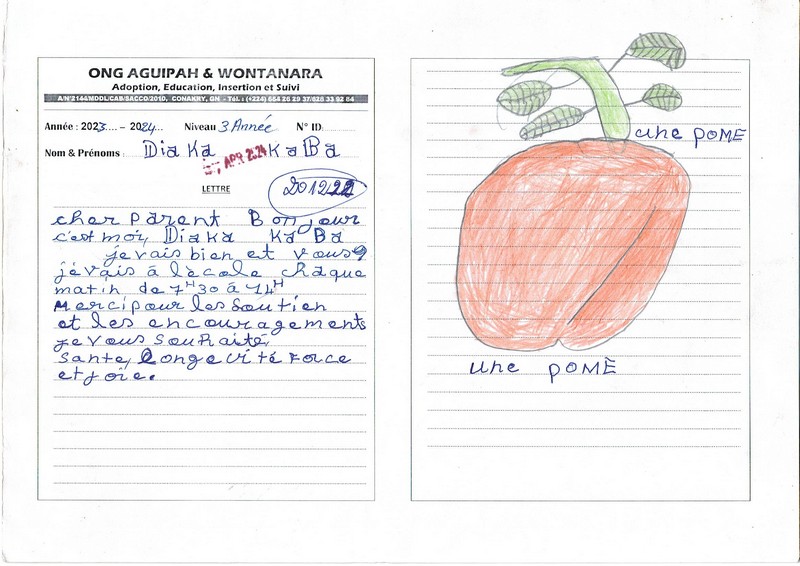 ONG AGUIPAH & WONTANARA
Adoption, Education, Insertion et Suivi
Année : 2023.... - 2024.... Niveau 3 Année N° ID:
Nom & Prénoms : Diaka KaBa
APR 2024
LETTRE
201222
cher Parent Bonjour
c'est moi, Diaka KaBa
je vais bien et vous?
je vais à l'école chaque
matin de 7H30 à 14H
Merci pour les Soutien
et les encouragements
je vous Souhaite,
Santé, Longevité Force
et joie.
une POME
une POME